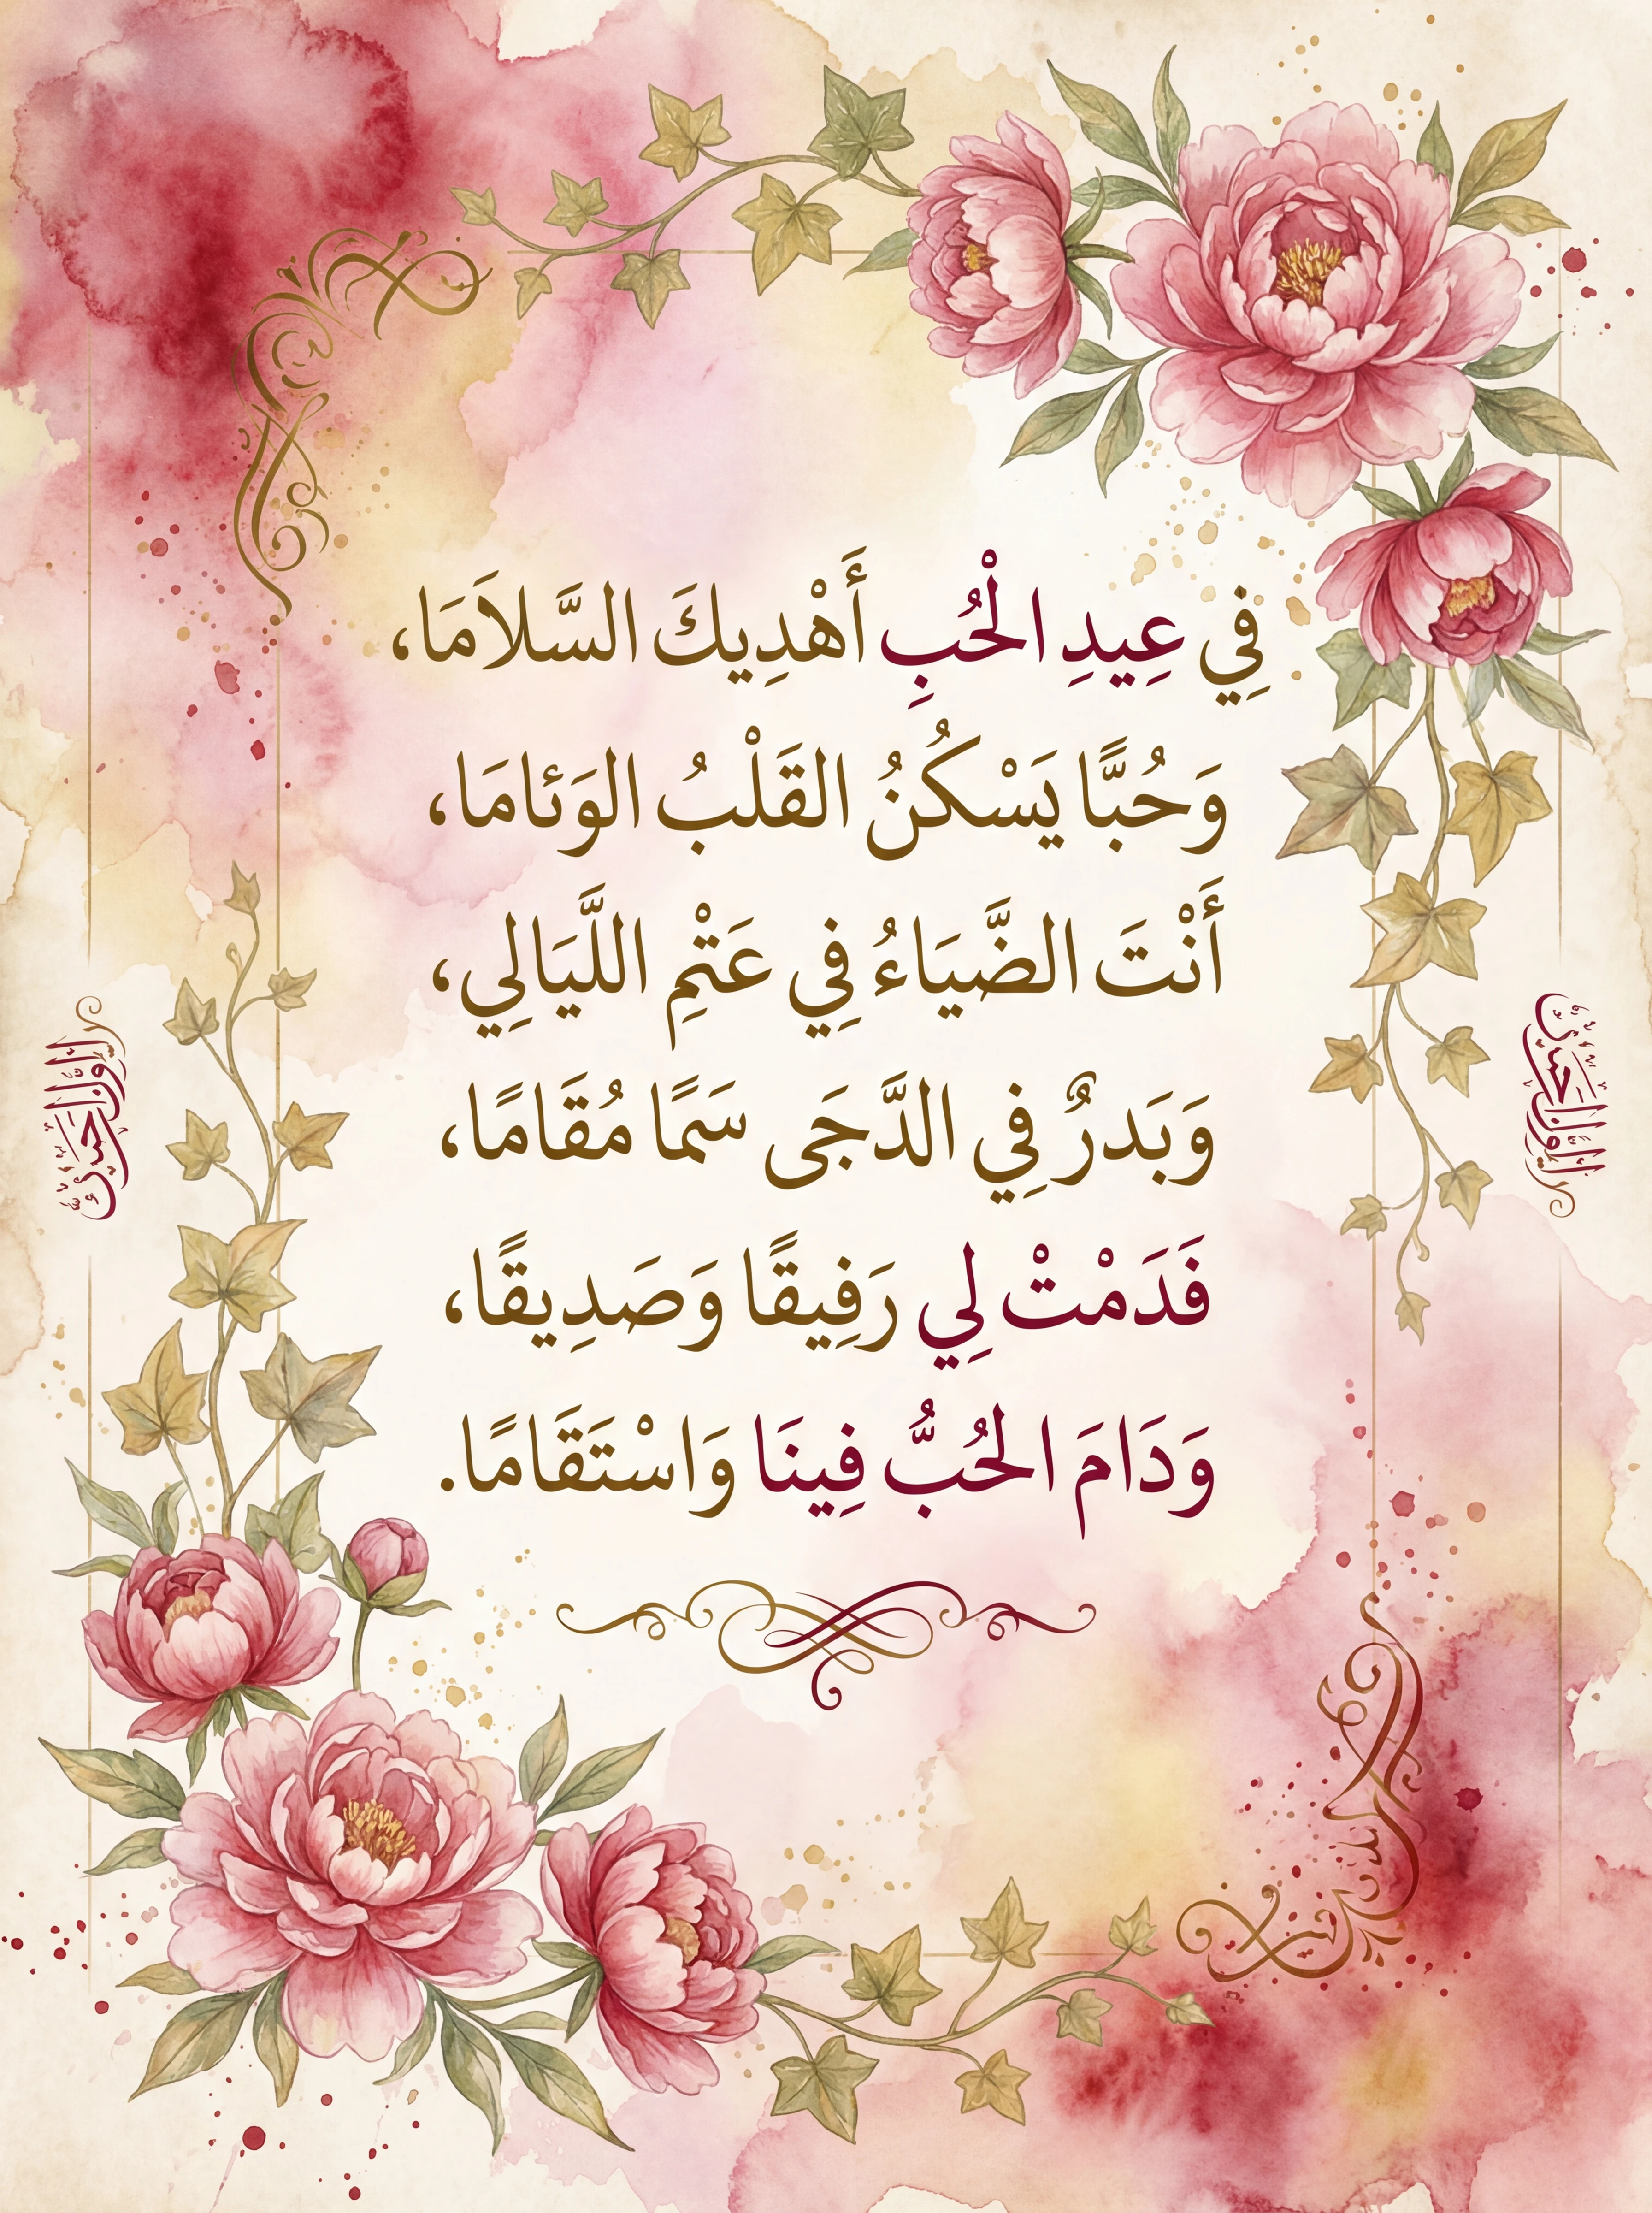 فِي عِيدِ الْحُبِ أَهْدِيكَ السَّلاَمَا،
وَحُبًّا يَسْكُنُ القَلْبُ الوَئامَا،
أَنْتَ الضَّيَاءُ فِي عَتْمِ اللَّيَالِي،
وَبَدرٌ فِي الدَّجَى سَمًا مُقَامًا،
فَدَمْتْ لِي رَفِيقًا وَصَدِيقًا،
وَدَامَ الحُبُّ فِينَا وَاسْتَقَامًا.